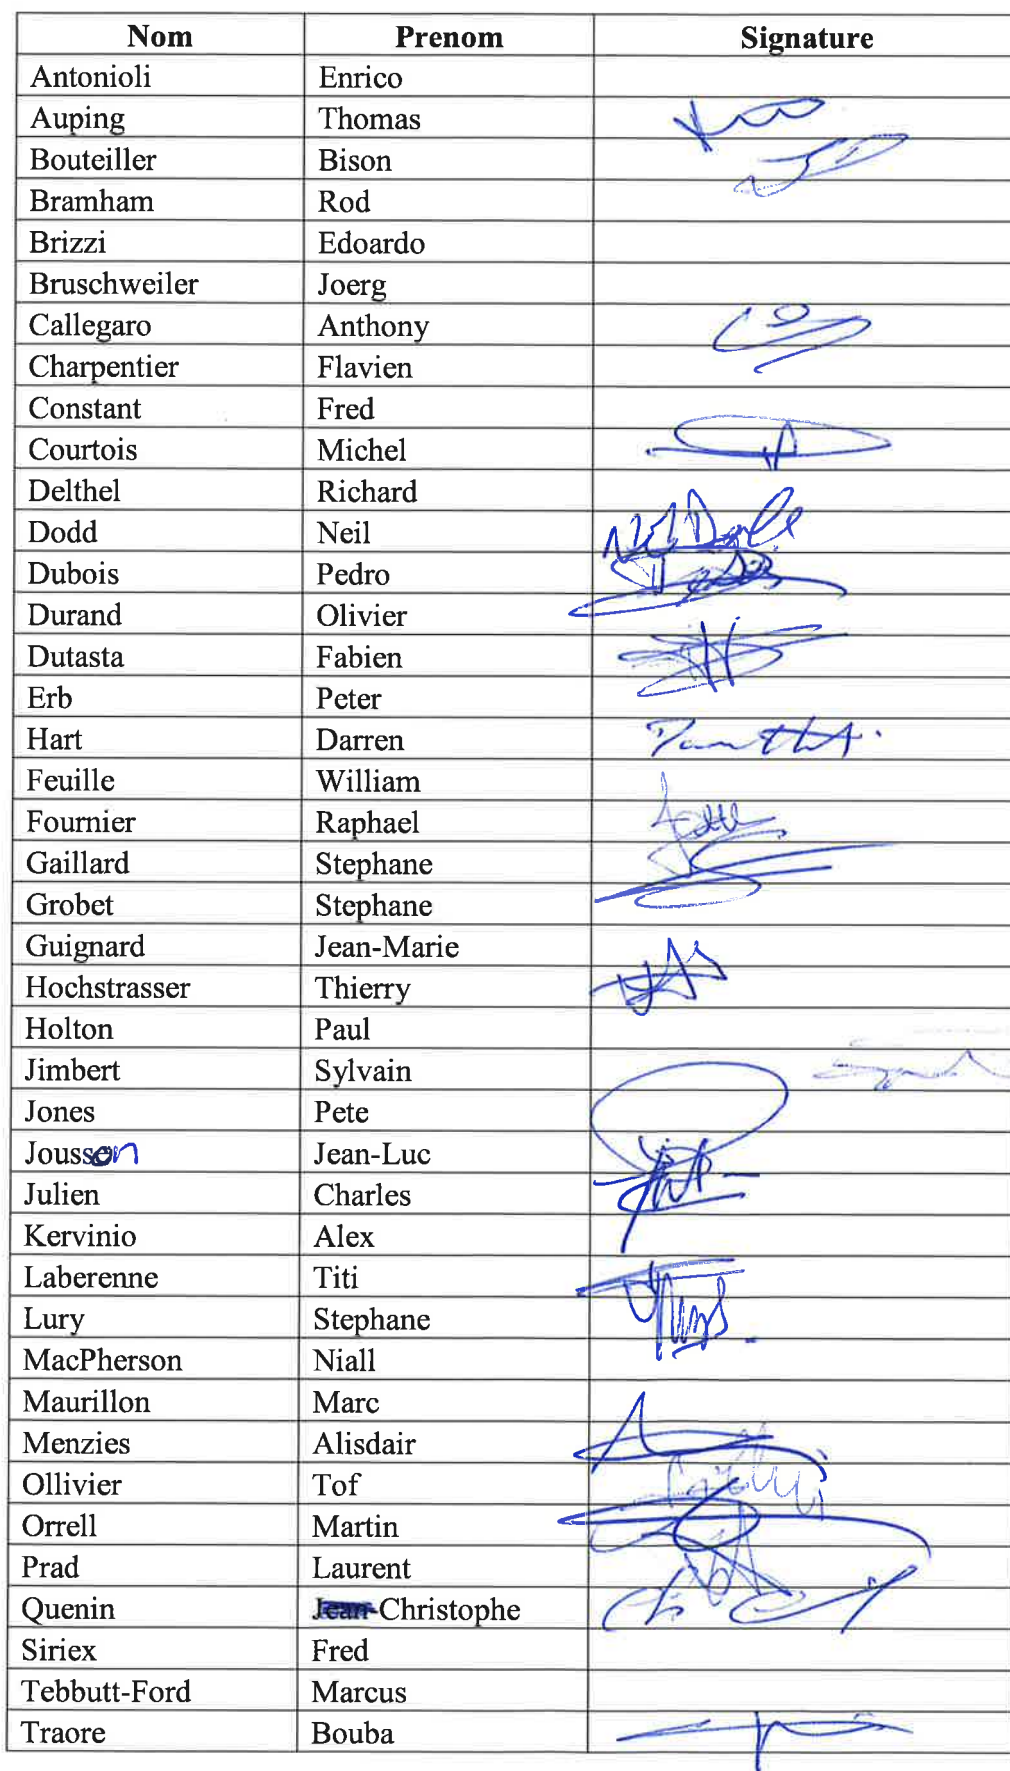 Nom Prenom Signature
Antonioli Enrico
Auping Thomas
Bouteiller Bison
Bramham Rod
Brizzi Edoardo
Bruschweiler Joerg
Callegaro Anthony
Charpentier Flavien
Constant Fred
Courtois Michel
Delthel Richard
Dodd Neil
Dubois Pedro
Durand Olivier
Dutasta Fabien
Erb Peter
Hart Darren
Feuille William
Fournier Raphael
Gaillard Stephane
Grobet Stephane
Guignard Jean-Marie
Hochstrasser Thierry
Holton Paul
Jimbert Sylvain
Jones Pete
Jousson Jean-Luc
Julien Charles
Kervinio Alex
Laberenne Titi
Lury Stephane
MacPherson Niall
Maurillon Marc
Menzies Alisdair
Ollivier Tof
Orrell Martin
Prad Laurent
Quenin Jean-Christophe
Siriex Fred
Tebbutt-Ford Marcus
Traore Bouba